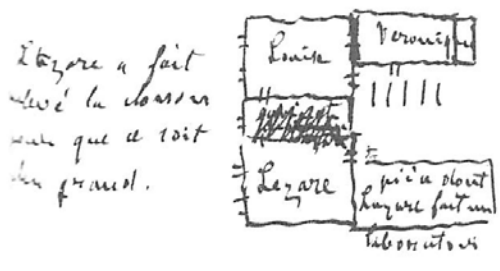 Lazare a fait
la cloison
que ce soit
grand.
Louise
Veronique
Lazare
pièce dont
Lazare fait un
laboratoire